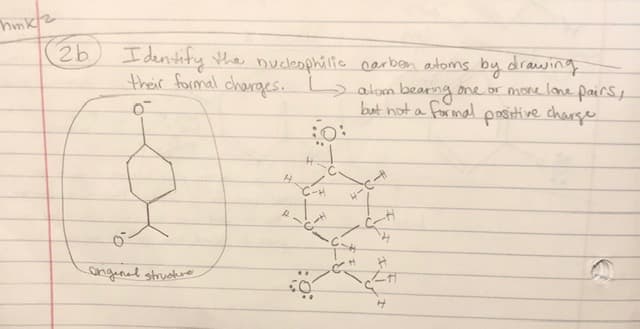 hmk 2
2b Identify the nucleophilic carbon atoms by drawing
their formal charges. → atom bearing one or more lone pairs,
but not a formal positive charge
O⁻
O⁻
original structure
:O:⁻
H C
H C-H C H H
H C H C H H
C-H
C H H
:O:⁻ C-H
H